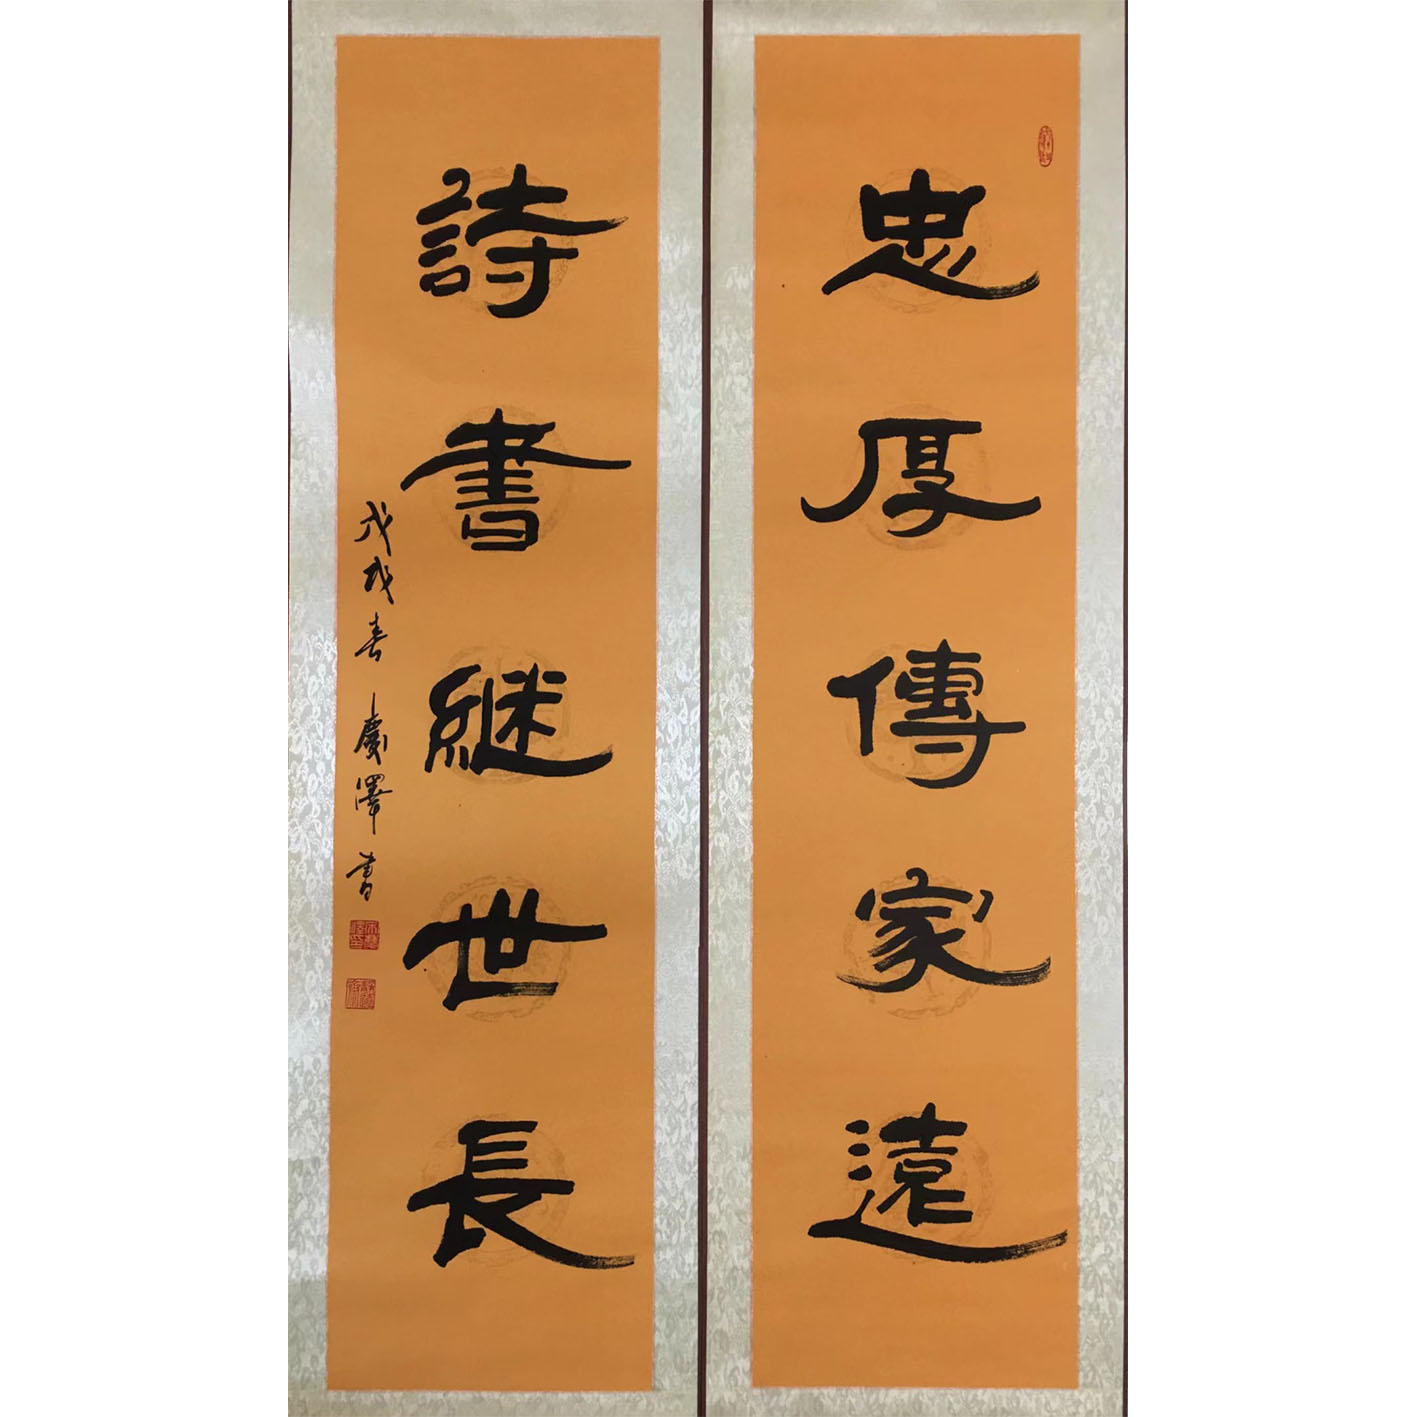 忠厚傳家遠
詩書继世長
戊戌春 慶澤書